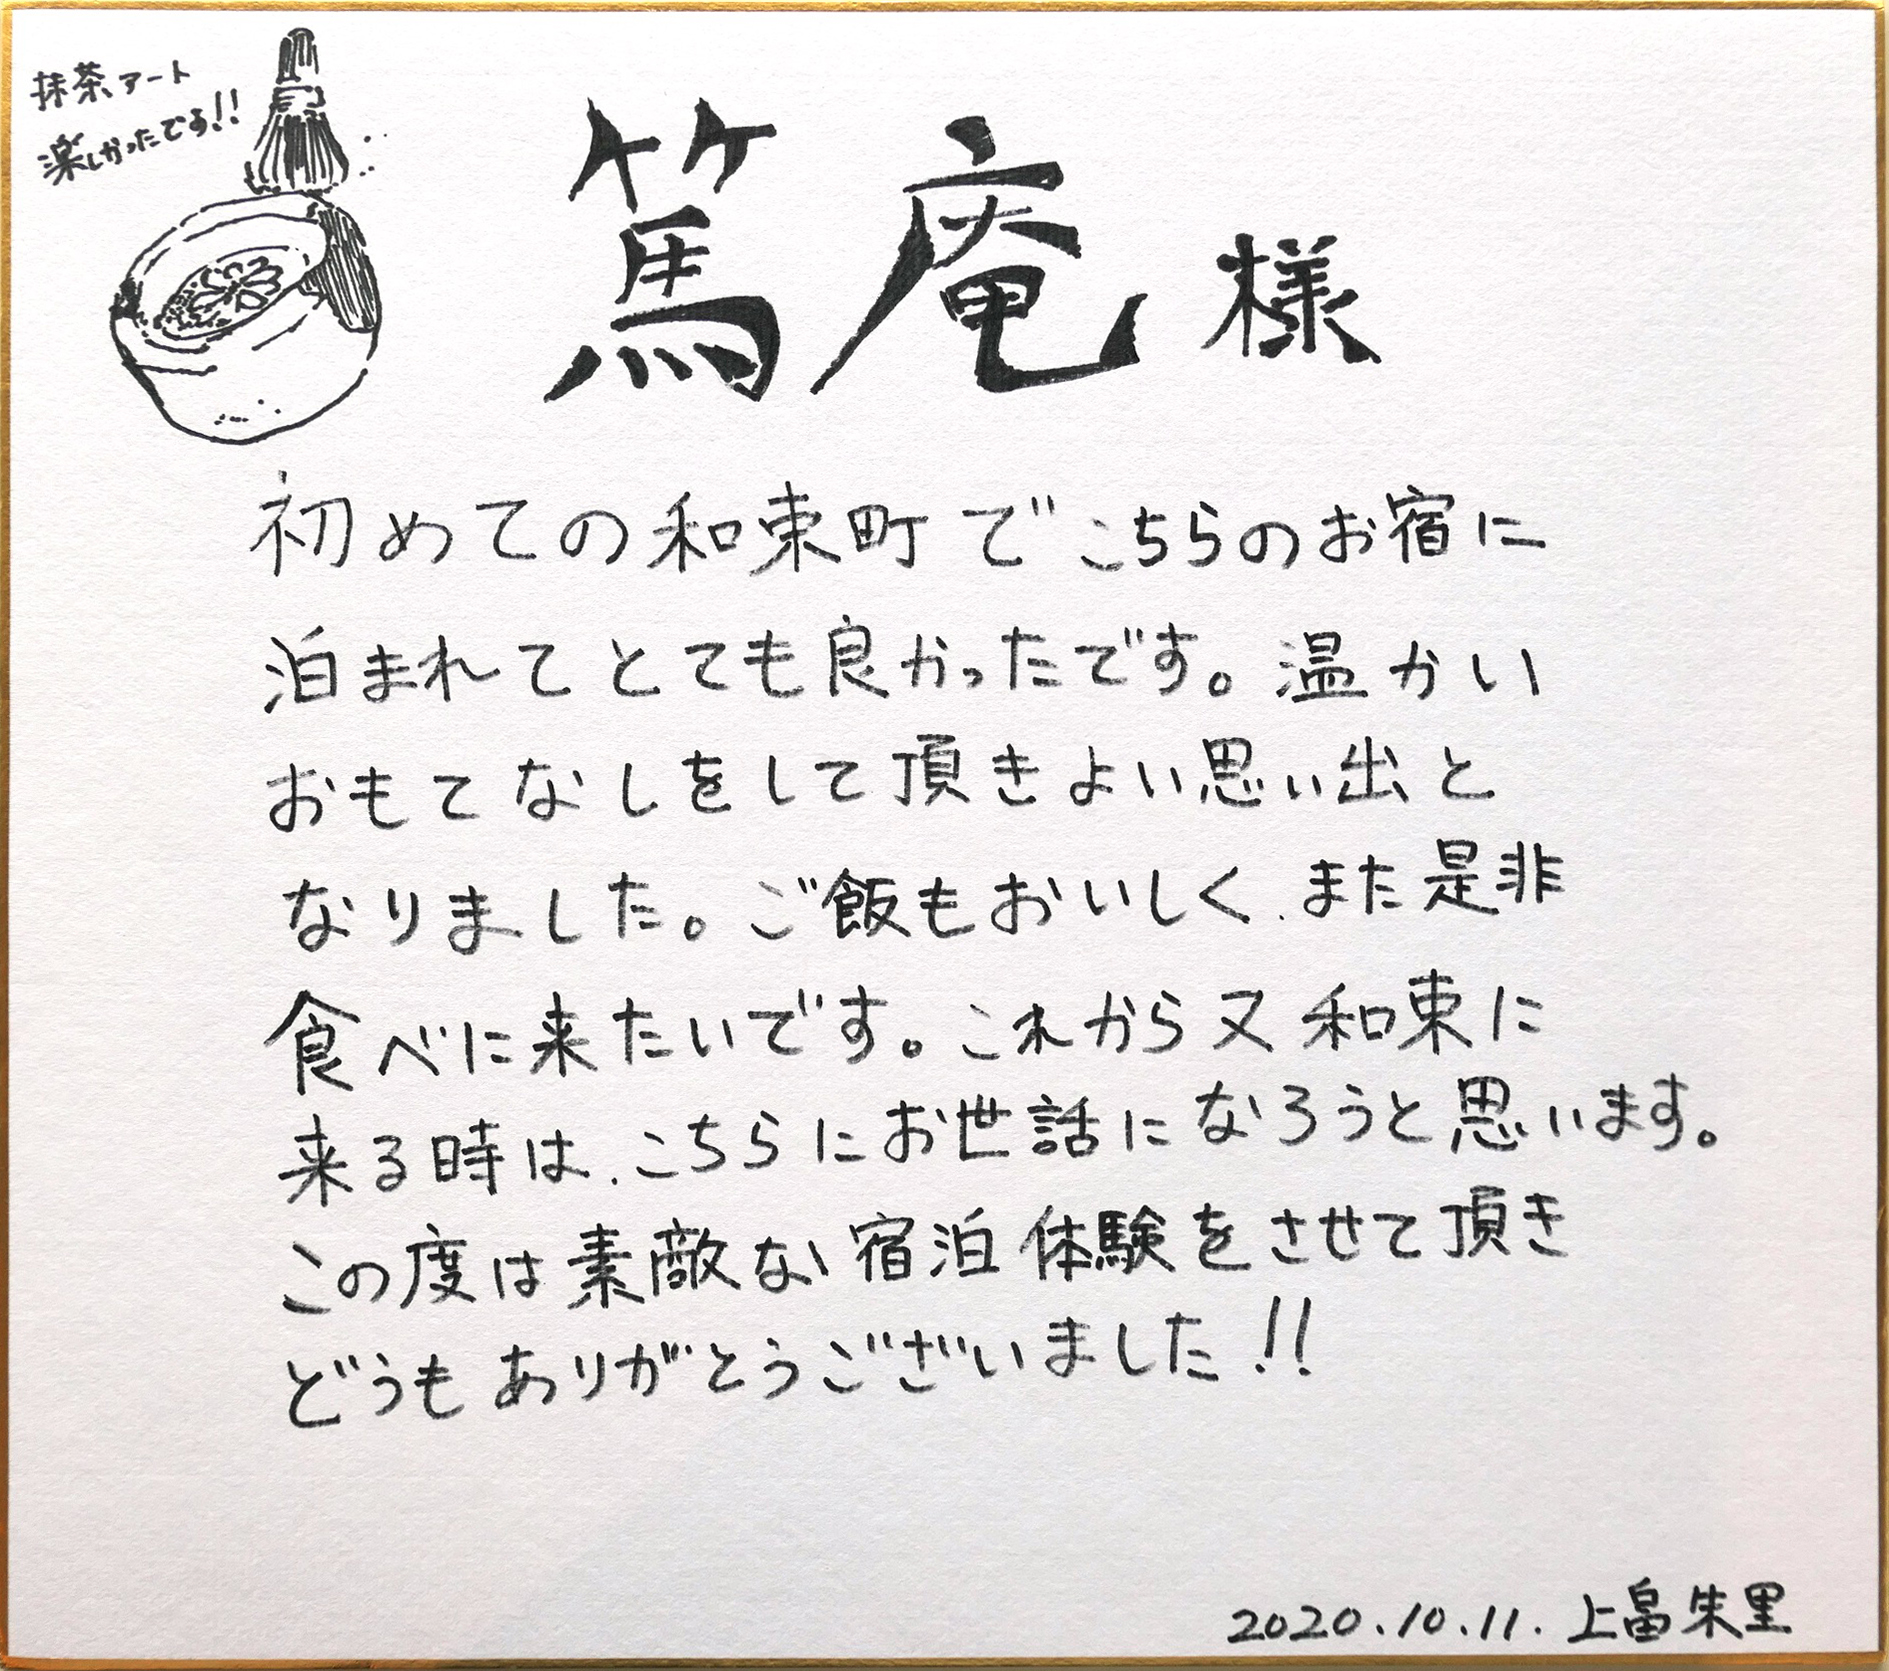 抹茶アート
楽しかったです!!
篤庵様
初めての和束町でこちらのお宿に
泊まれてとても良かったです。温かい
おもてなしをして頂きよい思い出と
なりました。ご飯もおいしく、また是非
食べに来たいです。これから又和束に
来る時は、こちらにお世話になろうと思います。
この度は素敵な宿泊体験をさせて頂き
どうもありがとうございました!!
2020.10.11. 上畠朱里